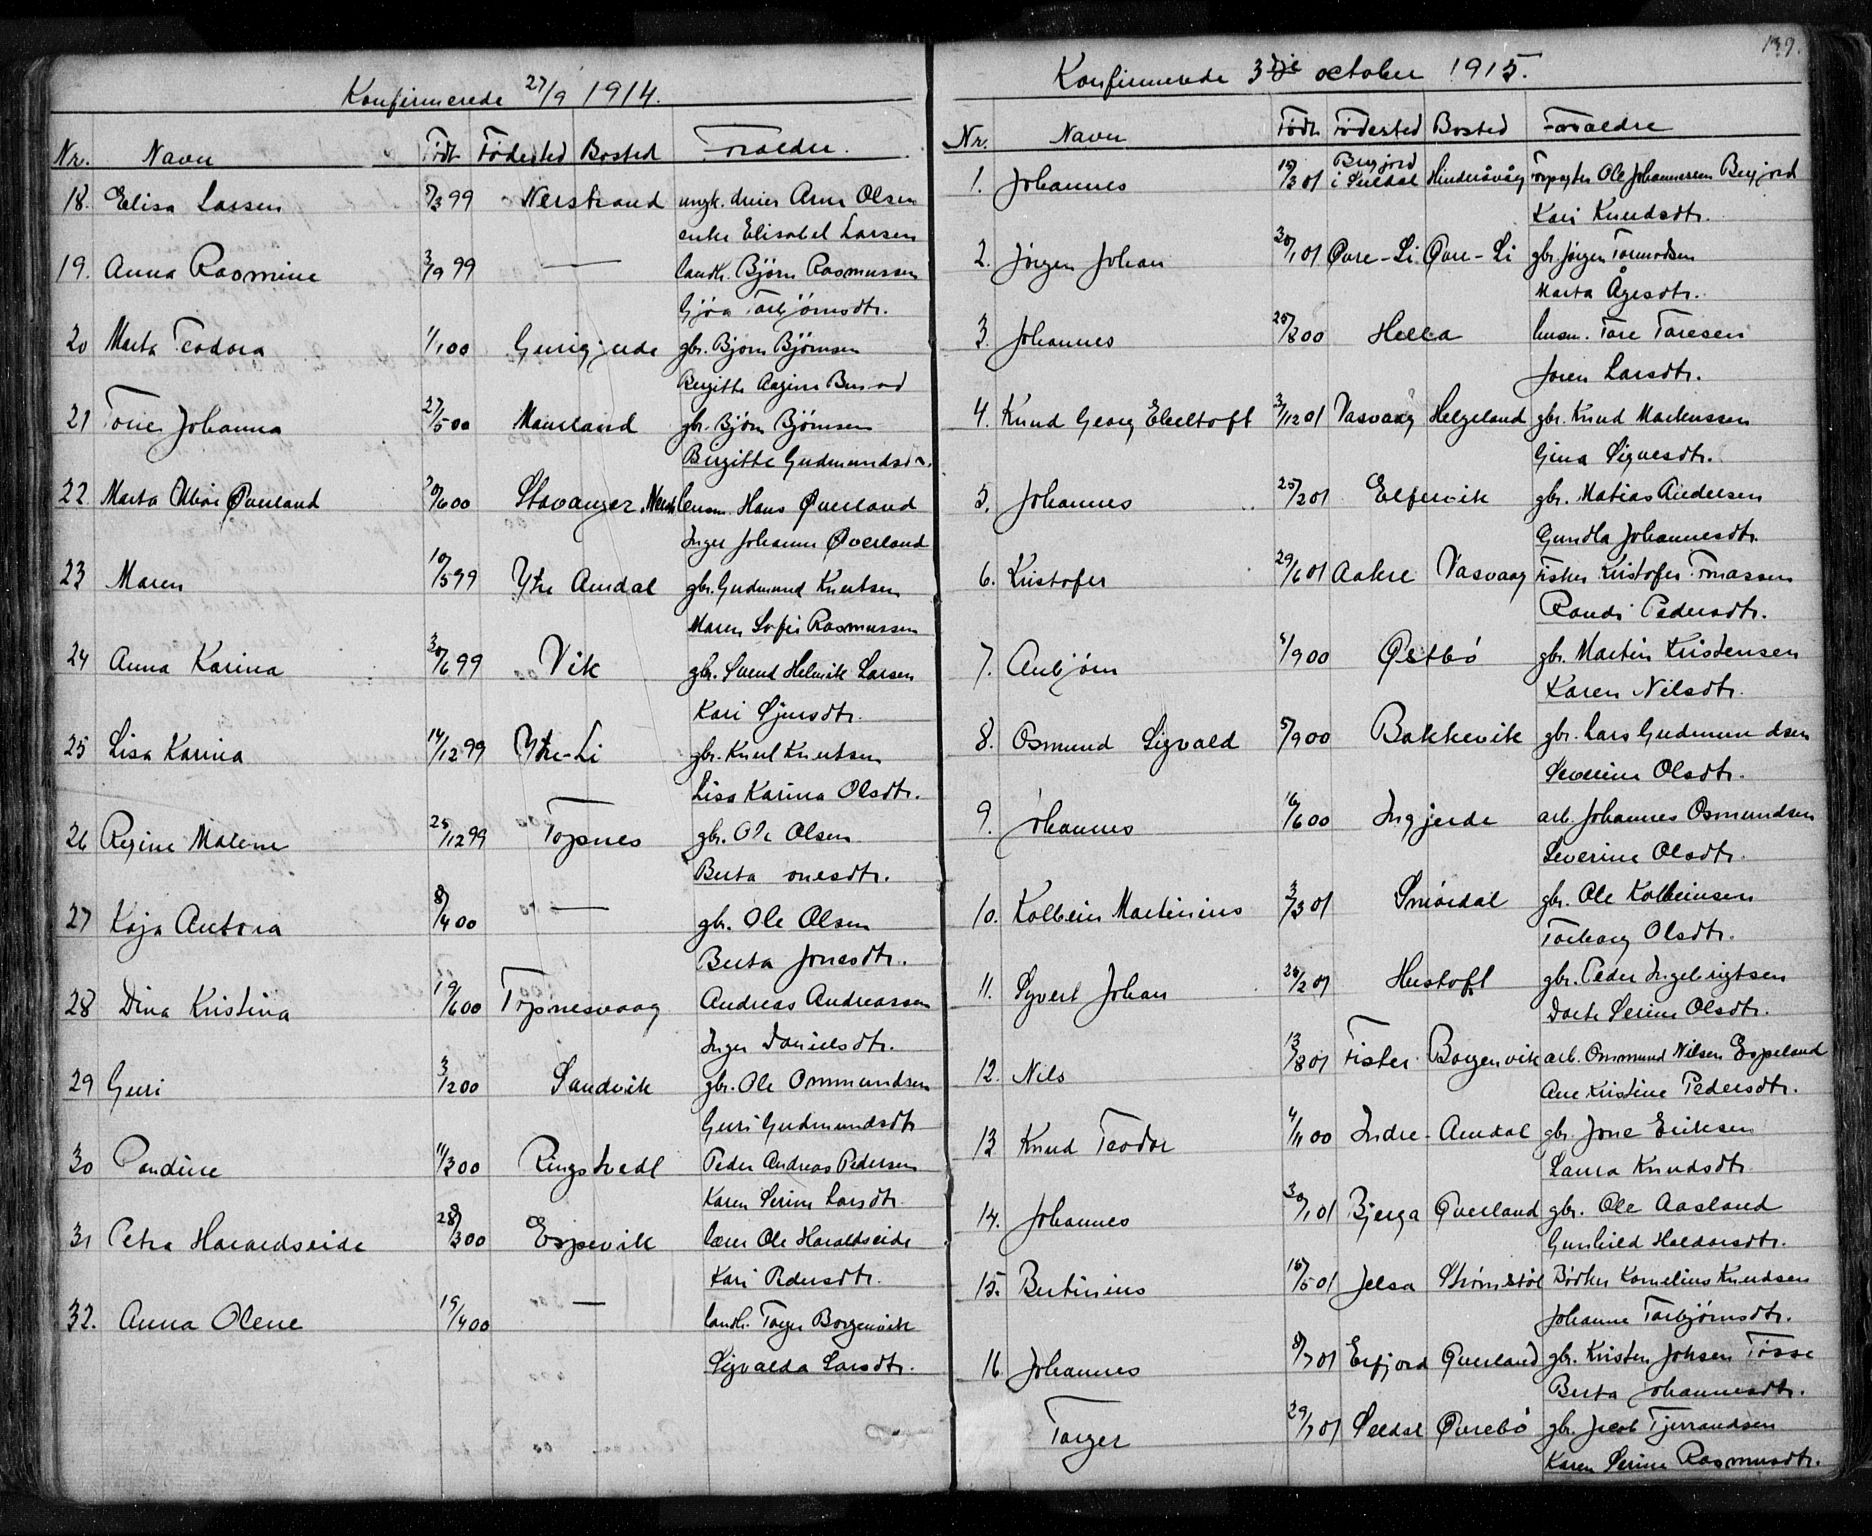 Konfirmerede 27/9 1914.
Nr. Navn Født Fødested Bosted Forældre.
18. Elisa Larsen 5/3 99 Nerstrand ungk. dreier Arne Olsen
enke Elisabet Larsen
19. Anna Rasmine 3/9 99 — landh. Bjørn Rasmussen
Gjøa Torbjørnsdtr.
20 Marta Teodora 1/1 00 gbr. Bjørn Bjørnsen
Birgitte
21 Tone Johanna 27/5 00 Mæland gbr. Bjørn Bjørnsen
Birgitte Gudmundsdtr.
22 Marta Øverland 20/6 00 Stavanger. lensm. Hans Øverland
Inger Johanne Øverland
23 Maren 10/5 99 Ytre Amdal gbr. Gudmund Knutsen
Maren Sofie Rasmussen
24 Anna Karina 30/6 99 Vik gbr. Svend Helmik Larsen
Kari Sjursdtr.
25 Lisa Karina 14/12 99 Ytre-Li gbr. Knut Knutsen
Lisa Karina Olsdtr.
26 Regine Malene 25/12 99 Topnes gbr. Ole Olsen
Berta onesdtr.
27 Kaja Antona 8/4 00 — gbr. Ole Olsen
Berta Jonesdtr.
28 Dina Kristina 19/6 00 Topnesvaag Andreas Andreassen
Inger Danielsdtr.
29 Guri 3/12 00 Sandvik gbr. Ole Ommundsen
Guri Gudmundsdtr
30 Pandine 11/3 00 Ringstvedt Peder Andreas Pedersen
Karen Serine Larsdtr.
31 Petra Haraldseide 28/3 00 Espevik lærer Ole Haraldseide
Kari Pedersdtr.
32. Anna Olene 19/4 00 — landh. Torger Borgenvik
Sigvalda Larsdtr.
139.
Konfirmerede 3die october 1915.
Nr. Navn Født Fødested Bosted Forældre
1. Johannes 19/3 01 Bergjord i Suldal Hinderåvåg Ole Johannessen Bergjord
Kari Knudsdtr.
2. Jørgen Johan 30/1 01 Øvre-Li Øvre-Li gbr. Jørgen Tormodsen
Marta Ågesdtr.
3. Johannes 25/8 00 Hella husm. Tore Toresen
Joren Larsdtr.
4. Knud Georg Ebeltoft 3/12 01 Vasvaag Helgeland gbr. Knud Martenssen
Gina Sigvesdtr.
5. Johannes 25/2 01 Espervik gbr. Matias Andersen
Gundla Johannesdtr.
6. Kristofer 29/6 01 Aakre Vasvaag Fisker Kristofer Tomassen
Randi Pedersdtr.
7. Anbjørn 5/9 00 Østbø gbr. Martin Kristensen
Karen Nilsdtr.
8. Osmund Sigvald 5/9 00 Bakkevik gbr. Lars Gudmundsen
Severine Olsdtr.
9. Johannes 16/6 00 Ingjerde arb. Johannes Osmundsen
Severine Olsdtr.
10. Kolbein Martinius 3/3 01 Smørdal gbr. Ole Kolbeinsen
Torborg Olsdtr.
11. Syvert Johan 26/2 01 Hustoft gbr. Peder Ingebrigtsen
Dorte Serine Olsdtr.
12. Nils 13/8 01 Fister Borgenvik arb. Ommund Nilsen Espeland
Ane Kristine Pedersdtr.
13 Knud Teodor 4/11 00 Indre-Amdal gbr. Jone Eriksen
Laura Knudsdtr.
14. Johannes 30/1 01 Bjerga Øverland gbr. Ole Aasland
Gunhild Haldorsdtr.
15. Bertinius 16/5 01 Jelsa Strømstøl Bødker Kornelius Knudsen
Johanne Torbjørnsdtr.
16. Johannes 8/7 01 Erfjord Øverland gbr. Kristen Johsen Tøsse
Berta Johannesdtr.
Torger 29/7 01 Suldal Øvrebø gbr. Jacob Tjerrandsen
Karen Serine Rasmusdtr.